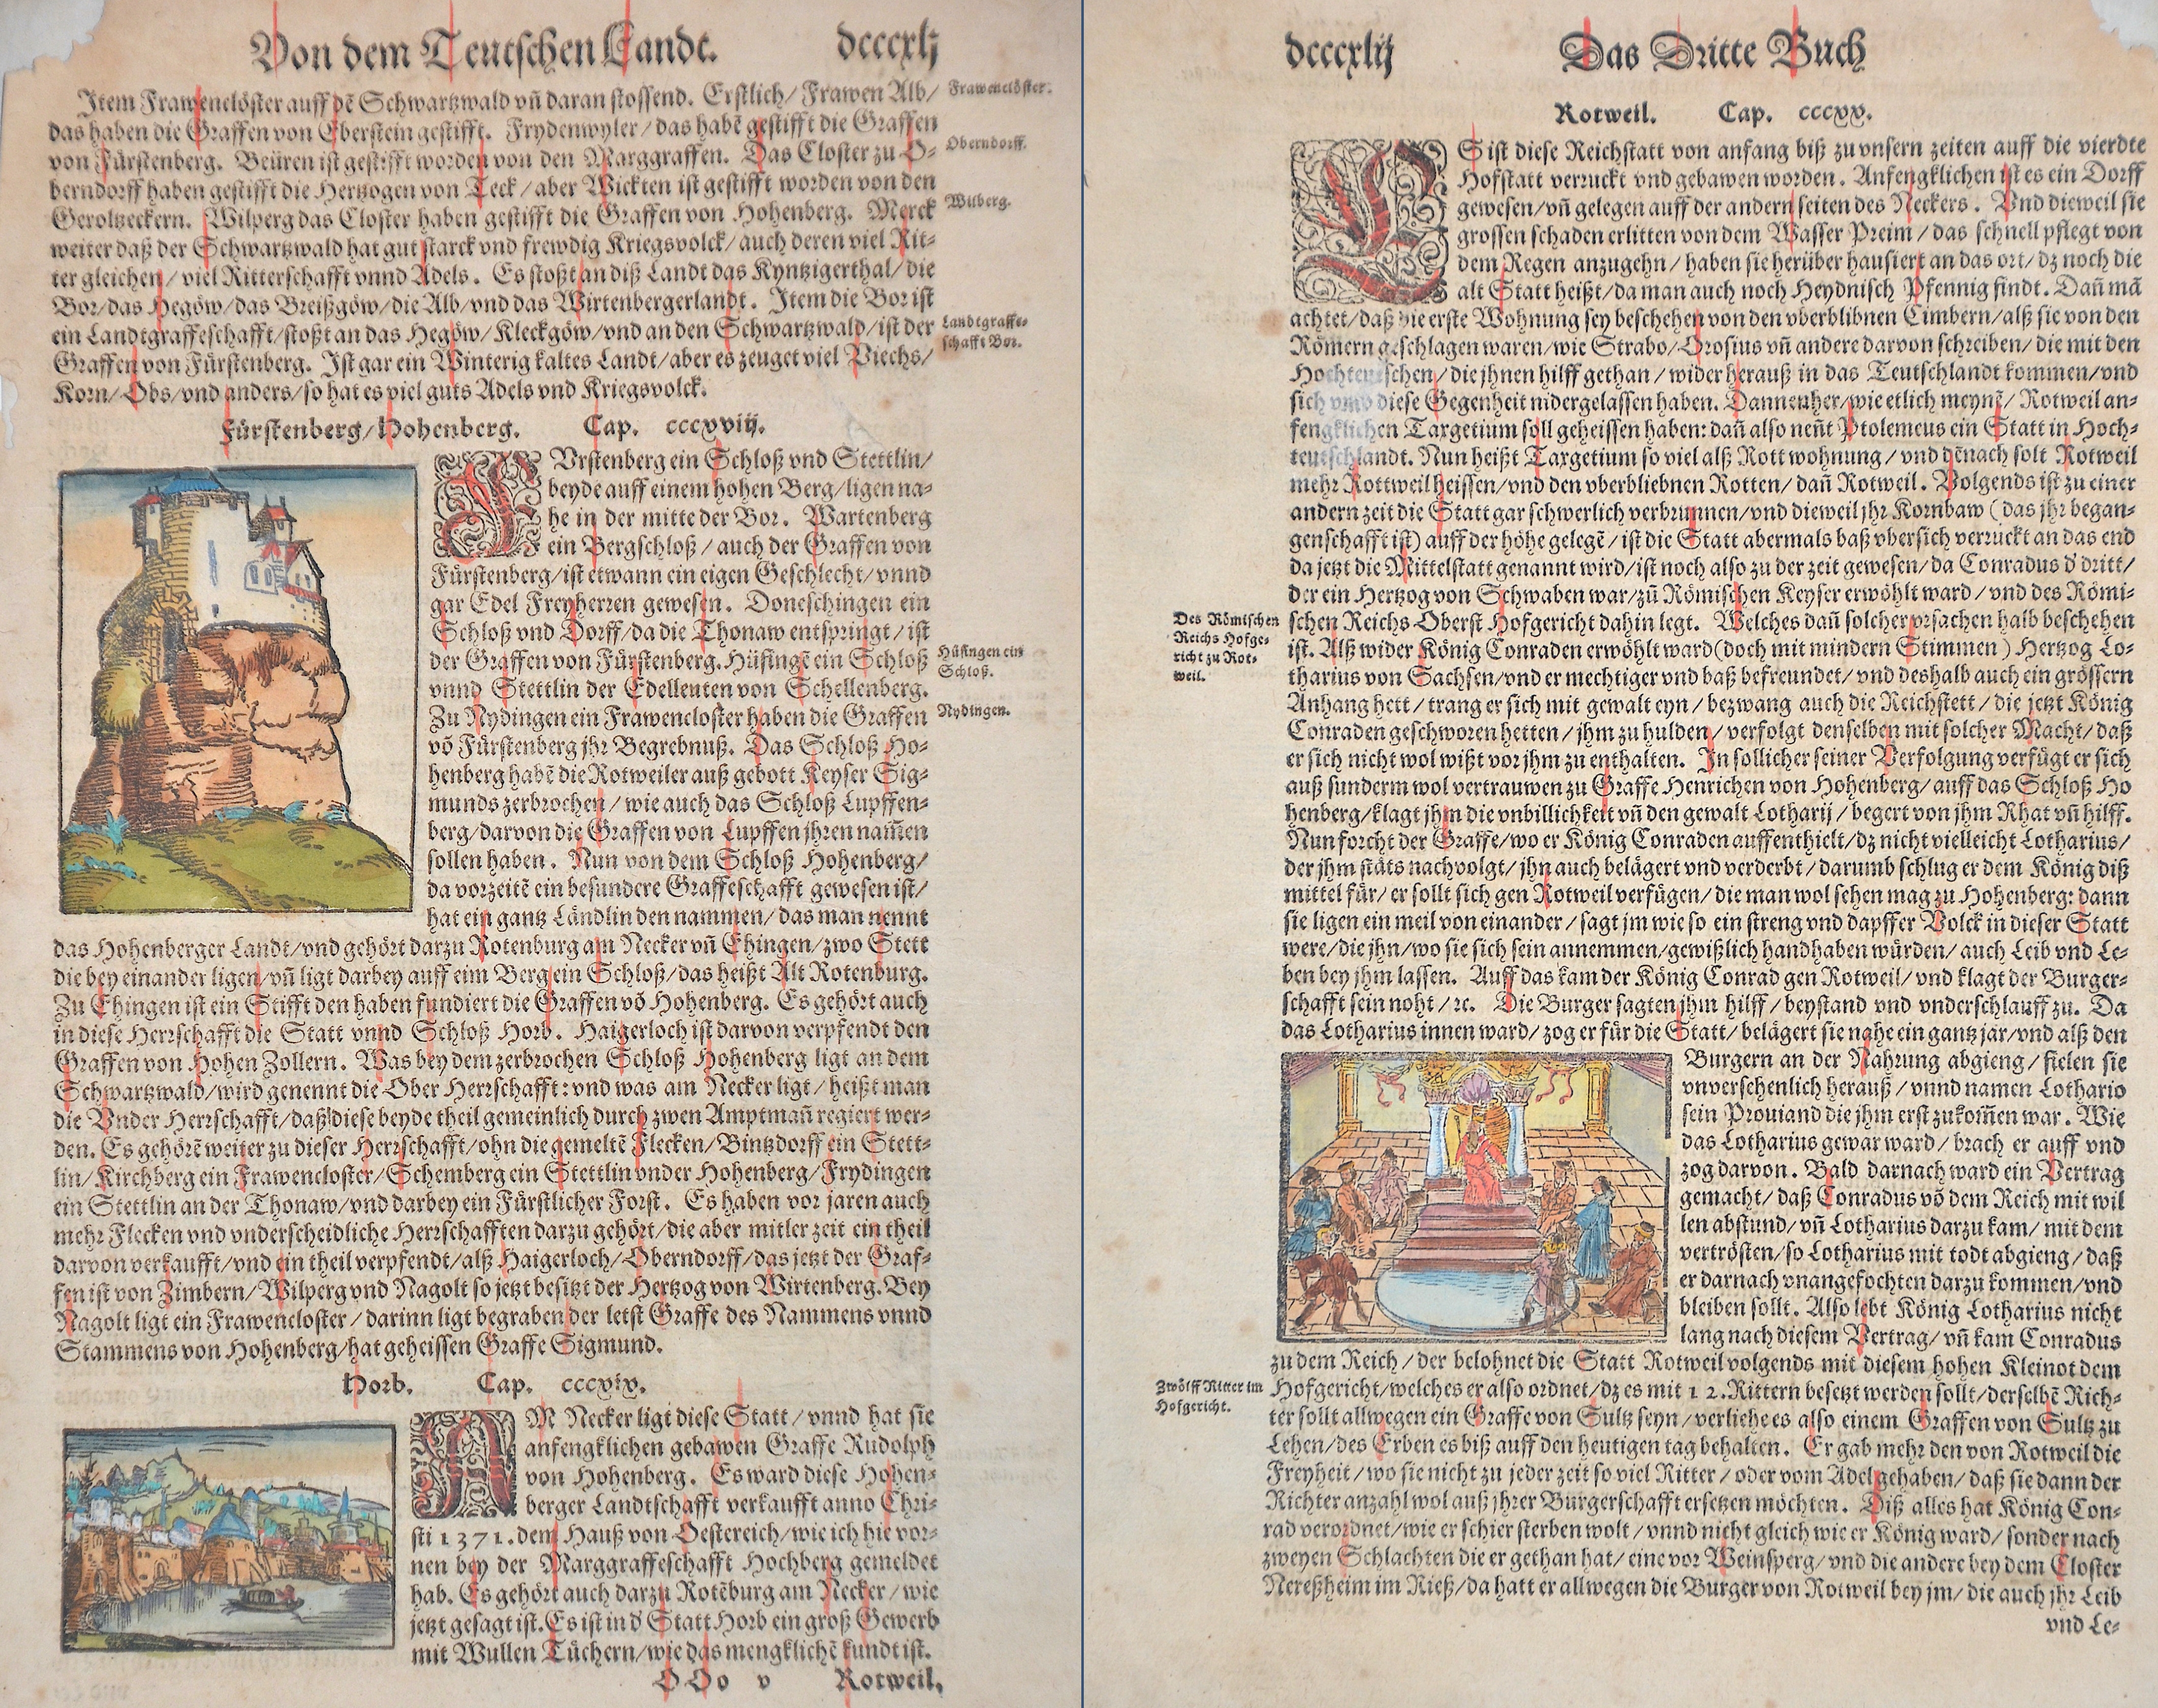 Von dem Teutschen Landt. dccccxlj
Item Frawenclöster auff dē Schwartzwald vñ daran stossend. Erstlich/ Frawen Alb/
Frawenclöster.
das haben die Graffen von Eberstein gestifft. Frydenwyler/ das habē gestifft die Graffen
von Fürstenberg. Beüren ist gestifft worden von den Marggraffen. Das Closter zu O-
Oberndorff.
berndorff haben gestifft die Hertzogen von Teck/ aber Wickten ist gestifft worden von den
Geroltzeckern. Wilperg das Closter haben gestifft die Graffen von Hohenberg. Merck
Wilberg.
weiter daß der Schwartzwald hat gut starck vnd frewdig Kriegsvolck/ auch deren viel Rit-
ter gleichen/ viel Ritterschafft vnnd Adels. Es stoßt an diß Landt das Kyntzigerthal/ die
Bor/ das Hegöw/ das Breißgöw/ die Alb/ vnd das Wirtenbergerlandt. Item die Bor ist
ein Landtgraffeschafft/ stoßt an das Hegöw/ Kleckgöw/ vnd an den Schwartzwald/ ist der
Landtgraffe-
schafft Bor.
Graffen von Fürstenberg. Ist gar ein Winterig kaltes Landt/ aber es zeuget viel Viechs/
Korn/ Obs/ vnd anders/ so hat es viel guts Adels vnd Kriegsvolck.
Fürstenberg/ Hohenberg. Cap. cccxviij.
FVrstenberg ein Schloß vnd Stettlin/
beyde auff einem hohen Berg/ ligen na-
he in der mitte der Bor. Wartenberg
ein Bergschloß/ auch der Graffen von
Fürstenberg/ ist etwann ein eigen Geschlecht/ vnnd
gar Edel Freyherren gewesen. Doneschingen ein
Schloß vnd Dorff/ da die Thonaw entspringt/ ist
der Graffen von Fürstenberg. Hüfingē ein Schloß
Hüfingen ein
Schloß.
vnnd Stettlin der Edelleuten von Schellenberg.
Zu Nydingen ein Frawencloster haben die Graffen
Nydingen.
vō Fürstenberg jhr Begrebnuß. Das Schloß Ho-
henberg habē die Rotweiler auß gebott Keyser Sig-
munds zerbrochen/ wie auch das Schloß Lupffen-
berg/ darvon die Graffen von Lupffen jhren nam̄en
sollen haben. Nun von dem Schloß Hohenberg/
da vorzeitē ein besundere Graffeschafft gewesen ist/
hat ein gantz Ländlin den nammen/ das man nennt
das Hohenberger Landt/ vnd gehört darzu Rotenburg am Necker vñ Ehingen/ zwo Stett
die bey einander ligen/ vñ ligt darbey auff eim Berg ein Schloß/ das heißt Alt Rotenburg.
Zu Ehingen ist ein Stifft den haben fundiert die Graffen vō Hohenberg. Es gehört auch
in diese Herrschafft die Statt vnnd Schloß Horb. Haigerloch ist darvon verpfendt den
Graffen von Hohen Zollern. Was bey dem zerbrochen Schloß Hohenberg ligt an dem
Schwartzwald/ wird genennt die Ober Herrschafft: vnd was am Necker ligt/ heißt man
die Vnder Herrschafft/ daß diese beyde theil gemeinlich durch zwen Amptmañ regiert wer-
den. Es gehörē weiter zu dieser Herrschafft/ ohn die gemeltē Flecken/ Bintzdorff ein Stett-
lin/ Kirchberg ein Frawencloster/ Schemberg ein Stettlin vnder Hohenberg/ Frydingen
ein Stettlin an der Thonaw/ vnd darbey ein Fürstlicher Forst. Es haben vor jaren auch
mehr Flecken vnd vnderscheidliche Herrschafften darzu gehört/ die aber mitler zeit ein theil
darvon verkaufft/ vnd ein theil verpfendt/ alß Haigerloch/ Oberndorff/ das jetzt der Graf-
fen ist von Zimbern/ Wilperg vnd Nagolt so jetzt besitzt der Hertzog von Wirtenberg. Bey
Nagolt ligt ein Frawencloster/ darinn ligt begraben der letst Graffe des Nammens vnnd
Stammens von Hohenberg/ hat geheissen Graffe Sigmund.
Horb. Cap. cccxix.
AM Necker ligt diese Statt/ vnnd hat sie
anfengklichen gebawen Graffe Rudolph
von Hohenberg. Es ward diese Hohen-
berger Landtschafft verkaufft anno Chri-
sti 1371. dem Hauß von Oestereich/ wie ich hie vor-
nen bey der Marggraffeschafft Hochberg gemeldet
hab. Es gehört auch darzu Rotēburg am Necker/ wie
jetzt gesagt ist. Es ist in d' Statt Horb ein groß Gewerb
mit Wullen Tüchern/ wie das mengklichē kundt ist.
OOo v Rotweil,
dccccxlij Das Dritte Buch
Rotweil. Cap. cccxx.
ES ist diese Reichstatt von anfang biß zu vnsern zeiten auff die vierdte
Hofstatt verruckt vnd gebawen worden. Anfengklichen ist es ein Dorff
gewesen/ vñ gelegen auff der andern seiten des Neckers. Vnd dieweil sie
grossen schaden erlitten von dem Wasser Preim/ das schnell pflegt von
dem Regen anzugehn/ haben sie herüber hausiert an das ort/ dz noch die
alt Statt heißt/ da man auch noch Heydnisch Pfennig findt. Dañ mā
achtet/ daß die erste Wohnung sey beschehen von den vberblibnen Cimbern/ alß sie von den
Römern geschlagen waren/ wie Strabo/ Orosius vñ andere darvon schreiben/ die mit den
Hochteutschen/ die jhnen hilff gethan/ wider herauß in das Teutschlandt kommen/ vnd
sich vmb diese Gegenheit nidergelassen haben. Dannenher/ wie etlich meynē/ Rotweil an-
fengklichen Taxgetium soll geheissen haben: dañ also neñt Ptolemeus ein Statt in Hoch-
teutschlandt. Nun heißt Taxgetium so viel alß Rott wohnung/ vnd dēnach solt Rotweil
mehr Rottweil heissen/ vnd den vberbliebnen Rotten/ dañ Rotweil. Volgends ist zu einer
andern zeit die Statt gar schwerlich verbrunnen/ vnd dieweil jhr Kornbaw (das jhr began-
genschafft ist) auff der höhe gelegē/ ist die Statt abermals baß vbersich verruckt an das end
da jetzt die Mittelstatt genannt wird/ ist noch also zu der zeit gewesen/ da Conradus d' dritt/
der ein Hertzog von Schwaben war/ zů Römischen Keyser erwöhlt ward/ vnd des Römi-
schen Reichs Oberst Hofgericht dahin legt. Welches dañ solcher vrsachen halb beschehen
Des Römischen
Reichs Hofge-
richt zu Rot-
weil.
ist. Alß wider König Conraden erwöhlt ward (doch mit mindern Stimmen) Hertzog Lo-
tharius von Sachsen/ vnd er mechtiger vnd baß befreundet/ vnd deshalb auch ein grössern
Anhang hett/ trang er sich mit gewalt eyn/ bezwang auch die Reichstett/ die jetzt König
Conraden geschworen hetten/ jhm zu hulden/ verfolgt denselben mit solcher Macht/ daß
er sich nicht wol wißt vor jhm zu enthalten. In sollicher seiner Verfolgung verfügt er sich
auß sunderm wol vertrauwen zu Graffe Henrichen von Hohenberg/ auff das Schloß Ho
henberg/ klagt jhm die vnbillichkeit vñ den gewalt Lotharij/ begert von jhm Rhat vñ hilff.
Nun forcht der Graffe/ wo er König Conraden auffenthielt/ dz nicht vielleicht Lotharius/
der jhm stäts nachvolgt/ jhn auch belägert vnd verderbt/ darumb schlug er dem König diß
mittel für/ er sollt sich gen Rotweil verfügen/ die man wol sehen mag zu Hohenberg: dann
sie ligen ein meil von einander/ sagt jm wie so ein streng vnd dapffer Volck in dieser Statt
were/ die jhn/ wo sie sich sein annemmen/ gewißlich handhaben würden/ auch Leib vnd Le-
ben bey jhm lassen. Auff das kam der König Conrad gen Rotweil/ vnd klagt der Burger-
schafft sein noht/ ꝛc. Die Burger sagten jhm hilff/ beystand vnd vnderschlauff zu. Da
das Lotharius innen ward/ zog er für die Statt/ belägert sie nahe ein gantz jar/ vnd alß den
Burgern an der Nahrung abgieng/ fielen sie
vnversehenlich herauß/ vnnd namen Lothario
sein Prouiand die jhm erst zukom̄en war. Wie
das Lotharius gewar ward/ brach er auff vnd
zog darvon. Bald darnach ward ein Vertrag
gemacht/ daß Conradus vō dem Reich mit wil
len abstund/ vñ Lotharius darzu kam/ mit dem
vertrösten/ so Lotharius mit todt abgieng/ daß
er darnach vnangefochten darzu kommen/ vnd
bleiben sollt. Also lebt König Lotharius nicht
lang nach diesem Vertrag/ vñ kam Conradus
zu dem Reich/ der belohnet die Statt Rotweil volgends mit diesem hohen Kleinot dem
Zwölff Ritter im
Hofgericht.
Hofgericht/ welches er also ordnet/ dz es mit 12. Rittern besetzt werden sollt/ derselbē Rich-
ter sollt allwegen ein Graffe von Sultz seyn/ verliehe es also einem Graffen von Sultz zu
Lehen/ des Erben es biß auff den heutigen tag behalten. Er gab mehr den von Rotweil die
Freyheit/ wo sie nicht zu jeder zeit so viel Ritter/ oder vom Adel gehaben/ daß sie dann der
Richter anzahl wol auß jhrer Burgerschafft ersetzen möchten. Diß alles hat König Con-
rad verordnet/ wie er schier sterben wolt/ vnnd nicht gleich wie er König ward/ sonder nach
zweyen Schlachten die er gethan hat/ eine vor Weinsperg/ vnd die andere bey dem Closter
Nereßheim im Rieß/ da hatt er allwegen die Burger von Rotweil bey jm/ die auch jhr Leib
vnd Le-